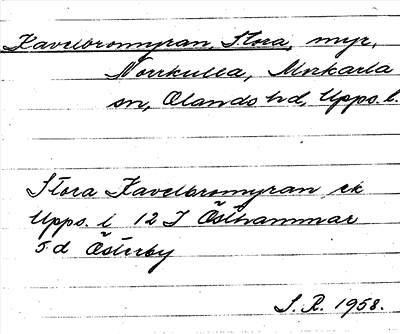 Kavelbromyran, Stora, myr,
Norrkulla, Morkarla
sn, Olands hd, Upps. l.
Stora Kavelbromyran ek
Upps. l 12 I Östhammar
5 d Österby
S. R. 1958.